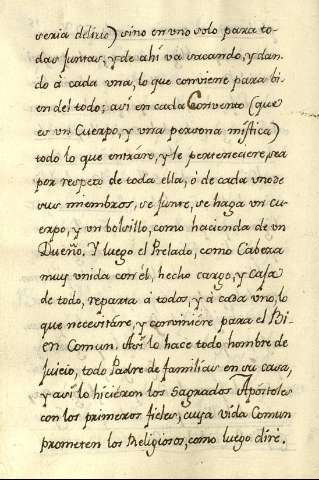 seria delirio) sino en vno solo para to-
das juntas, y de ahi va sacando, y dan-
do à cada vna, lo que conviene para bi-
en del todo; asi en cada Convento (que
es vn Cuerpo, y vna persona mistica)
todo lo que entràre, y le perteneciere, sea
por respeto de toda ella, ò de cada vno de
sus miembros, se junte, se haga vn cu-
erpo, y vn bolsillo, como hacienda de vn
Dueño. Y luego el Prelado, como Cabeza
muy vnida con èl, hecho cargo, y Casa
de todo, reparta à todos, y à cada vno, lo
que necesitàre, y conviniére para el Bi-
en Comun. Asi lo hace todo hombre de
juicio, todo Padre de familias en su casa,
y asi lo hicieron los Sagrados Apóstoles
con los primeros fieles, cuya vida Comun
prometen los Religiosos, como luego diré.